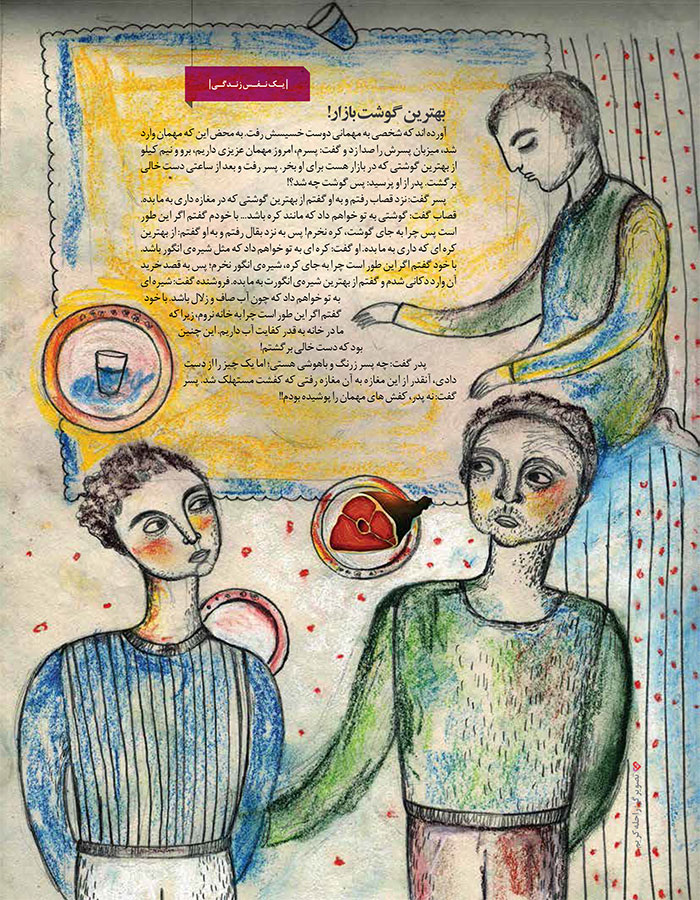 |یک نفس زندگی|
بهترین گوشت بازار!
آورده اند که شخصی به مهمانی دوست خسیسش رفت. به محض این که مهمان وارد
شد، میزبان پسرش را صدا زد و گفت: پسرم، امروز مهمان عزیزی داریم، برو و نیم کیلو
از بهترین گوشتی که در بازار هست برای او بخر. پسر رفت و بعد از ساعتی دست خالی
برگشت. پدر از او پرسید: پس گوشت چه شد؟!
پسر گفت: نزد قصاب رفتم و به او گفتم از بهترین گوشتی که در مغازه داری به ما بده.
قصاب گفت: گوشتی به تو خواهم داد که مانند کره باشد... با خودم گفتم اگر این طور
است پس چرا به جای گوشت، کره نخرم! پس به نزد بقال رفتم و به او گفتم: از بهترین
کره ای که داری به ما بده. او گفت: کره ای به تو خواهم داد که مثل شیره‌ی انگور باشد.
با خود گفتم اگر این طور است چرا به جای کره، شیره‌ی انگور نخرم؛ پس به قصد خرید
آن وارد دکانی شدم و گفتم از بهترین شیره‌ی انگورت به ما بده. فروشنده گفت: شیره ای
به تو خواهم داد که چون آب صاف و زلال باشد. با خود
گفتم اگر این طور است چرا به خانه نروم، زیرا که
ما در خانه به قدر کفایت آب داریم. این چنین
بود که دست خالی برگشتم!
پدر گفت: چه پسر زرنگ و باهوشی هستی؛ اما یک چیز را از دست
دادی، آنقدر از این مغازه به آن مغازه رفتی که کفشت مستهلک شد. پسر
گفت: نه پدر، کفش های مهمان را پوشیده بودم!!
تصویرگر: راحله کریم